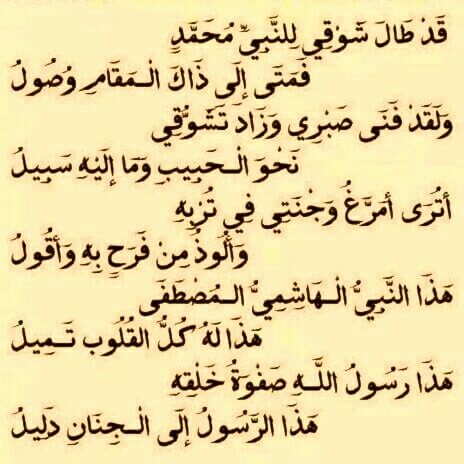 قَدْ طَالَ شَوْقِي لِلنَّبِيِّ مُحَمَّدٍ
فَمَتَى إِلَى ذَاكَ الْـمَقَامِ وُصُولُ
وَلَقَدْ فَنَى صَبْرِي وَزَادَ تَشَوُّقِي
نَحْوَ الْـحَبِيبِ وَمَا إِلَيْهِ سَبِيلُ
أَتُرَى أُمَرِّغُ وَجْنَتِي فِي تُرْبِهِ
وَأَلُوذُ مِنْ فَرَحٍ بِهِ وَأَقُولُ
هَذَا النَّبِيُّ الْـهَاشِمِيُّ الْـمُصْطَفَى
هَذَا لَهُ كُلُّ القُلُوبِ تَـمِيلُ
هَذَا رَسُولُ اللَّـهِ صَفْوَةُ خَلْقِهِ
هَذَا الرَّسُولُ إِلَى الْـجِنَانِ دَلِيلُ